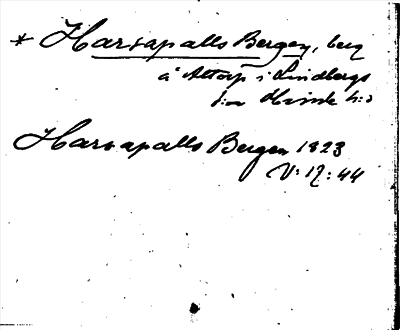 * Harsapalls Bergen, berg
å Attorp i Lindbergs
s:n Himle h:d
Harsapalls Bergen 1823
V: 12: 44